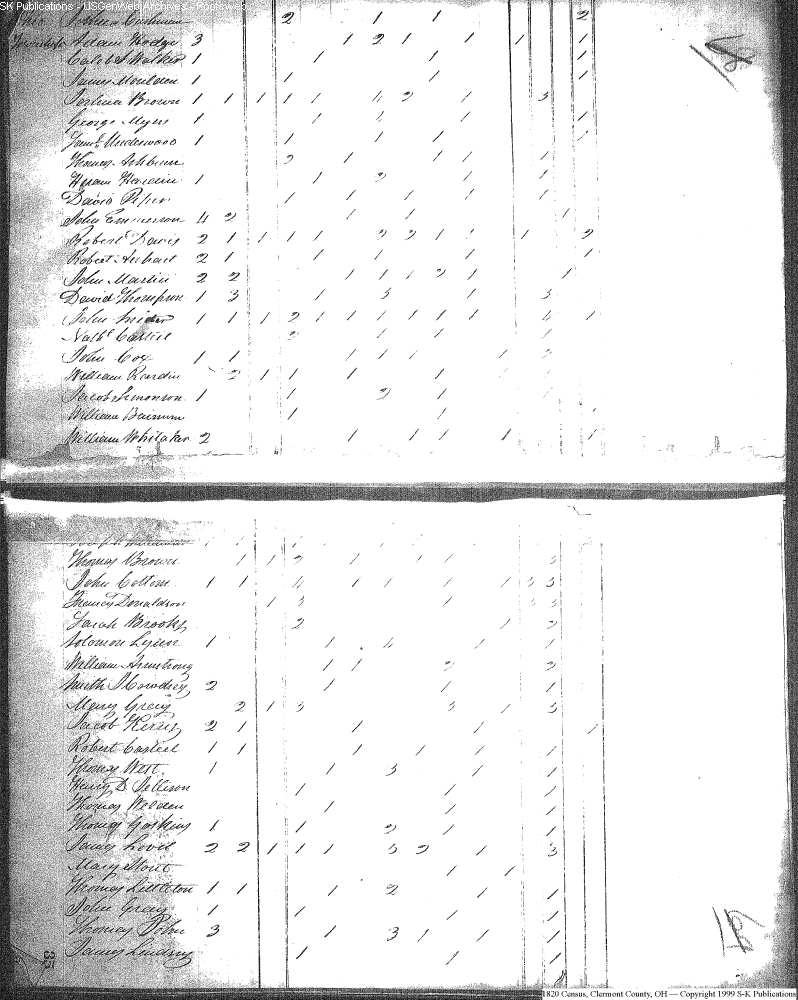 SK Publications - USGenWeb Archives - Rootsweb
2 1 1 2
Township Adam Hodge 3 1 2 1 1 1 1
Caleb S Walker 1 1 1 1
James Moulden 1 1 1 1
Joshua Brown 1 1 1 1 1 4 2 1 3
George Myers 1 1 4 1 1
James Underwood 1 1 1 1 1
Thomas Ashburn 2 1 1 1 1
Hiram Hardin 1 1 2 1 1
David Piper 1 1 1 1 1
John Emmerson 4 2 1 1 1
Robert Davis 2 1 1 1 1 2 2 1 1 1 2
Robert 2 1 1 1 1 1
John Martin 2 2 1 1 1 2 1 1
David Thompson 1 3 1 3 1 3
John Snider 1 1 1 2 1 1 1 1 1 1 4 1
Nathl Casteel 2 1 1 1
John Cox 1 1 1 1 1 1 2
William Rardin 2 1 1 1 1 1
Jacob Simonson 1 1 2 1 1
William Bainum 1 1 1
William Whitaker 2 1 1 1 1 1
Thomas Brown 1 1 2 1 1 1 3
John Cottom 1 1 4 1 1 1 1 3 3
Francis Donaldson 1 3 1 3 3
Sarah Brooks 2 1 2
Solomon Lyon 1 1 4 1 1
William Armstrong 1 1 2 2
Smith 2 1 1 1
Mary Gray 2 1 3 3 1 3
Jacob 2 1 1 1 1
Robert Casteel 1 1 1 1 1 1
Thomas West 1 1 3 1 1
Henry D. Jellison 1 1 1
Thomas Welden 1 1 1
Thomas Gaskins 1 1 2 1 1
James Lovit 2 2 1 1 1 3 2 1 3
Mary Stout 1 1
Thomas Littleton 1 1 1 2 1 1
John Gray 1 1 1 1
Thomas John 3 1 3 1 1 1
James Lindsey 1 1 1
1820 Census, Clermont County, OH — Copyright 1999 S-K Publications